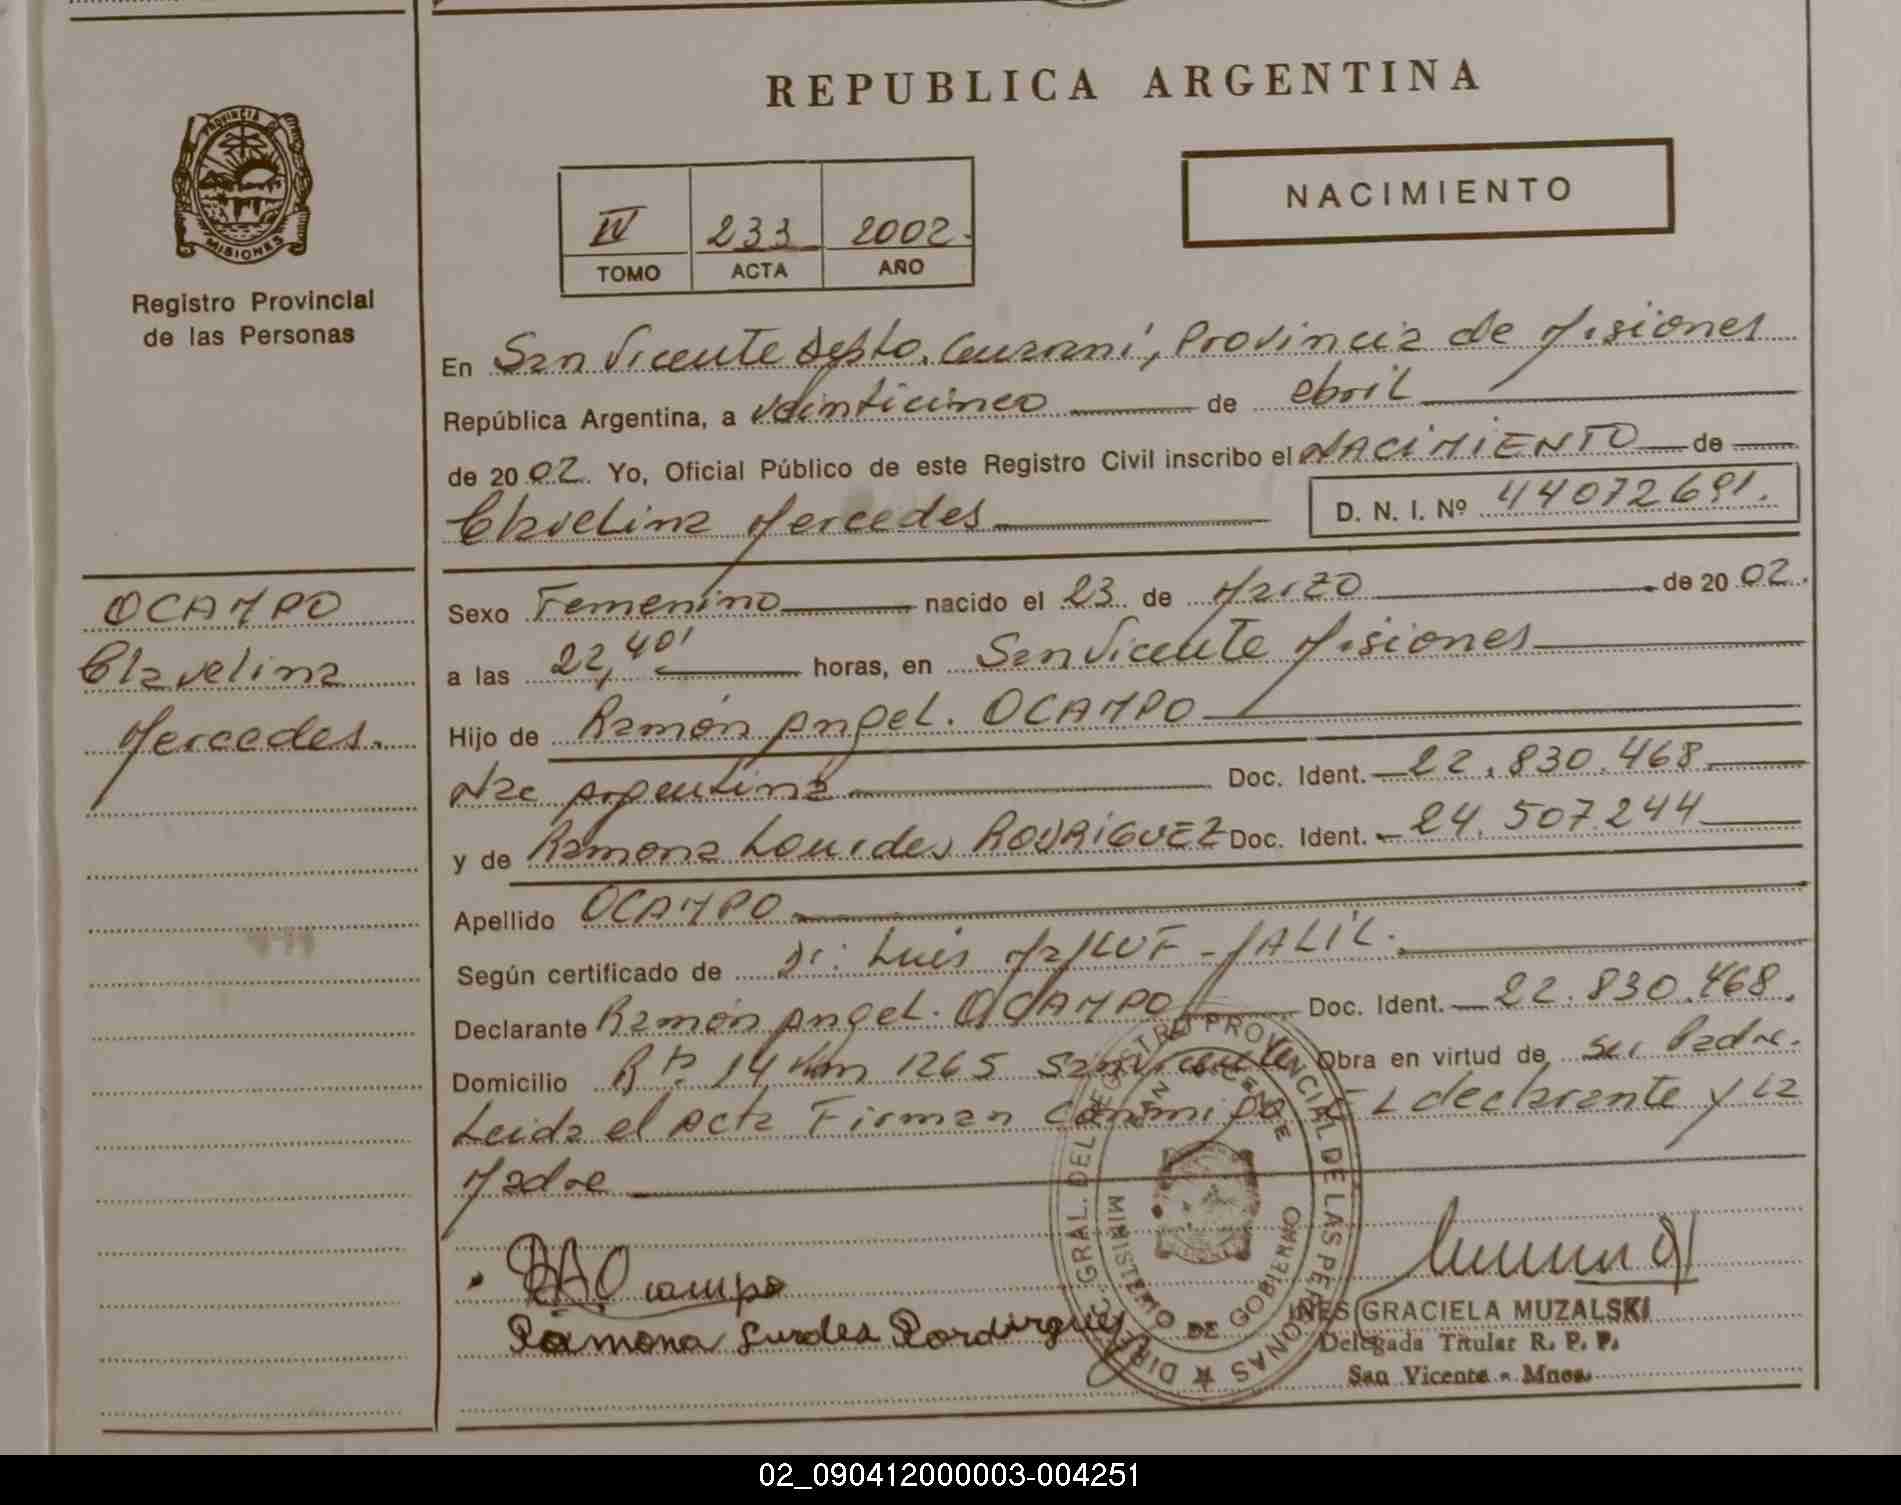 REPUBLICA ARGENTINA
PROVINCIA DE
MISIONES
Registro Provincial
de las Personas
NACIMIENTO
IV 233 2002
TOMO ACTA AÑO
En San Vicente Depto. Guaraní, Provincia de Misiones
República Argentina, a veinticinco de abril
de 2002. Yo, Oficial Público de este Registro Civil inscribo el NACIMIENTO de
Clavelina Mercedes D. N. I. Nº 44072691.
OCAMPO
Clavelina
Mercedes.
Sexo Femenino nacido el 23 de Marzo de 2002.
a las 22,40' horas, en San Vicente Misiones
Hijo de Ramón Angel. OCAMPO
Nac argentina Doc. Ident. 22.830.468
y de Ramona Lourdes RODRIGUEZ Doc. Ident. 24.507.244
Apellido OCAMPO
Según certificado de Dr: Luis MALUF - JALIL.
Declarante Ramón Angel. OCAMPO Doc. Ident. 22.830.468.
Domicilio Rta. 14 Km 1265 San Vicente Obra en virtud de ser Padre.
Leida el Acta Firman conmigo EL declarante y la
Madre
RA Ocampo
Ramona Lurdes Rordirguez
DIREC. GRAL. DEL REGISTRO PROVINCIAL DE LAS PERSONAS
SAN VICENTE
MINISTERIO DE GOBIERNO
INES GRACIELA MUZALSKI
Delegada Titular R. P. P.
San Vicente - Mnes.
02_090412000003-004251